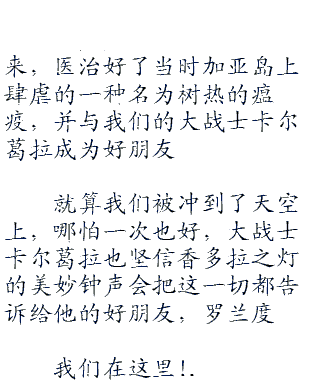 来，医治好了当时加亚岛上
肆虐的一种名为树热的瘟
疫，并与我们的大战士卡尔
葛拉成为好朋友
就算我们被冲到了天空
上，哪怕一次也好，大战士
卡尔葛拉也坚信香多拉之灯
的美妙钟声会把这一切都告
诉给他的好朋友，罗兰度
我们在这里！.